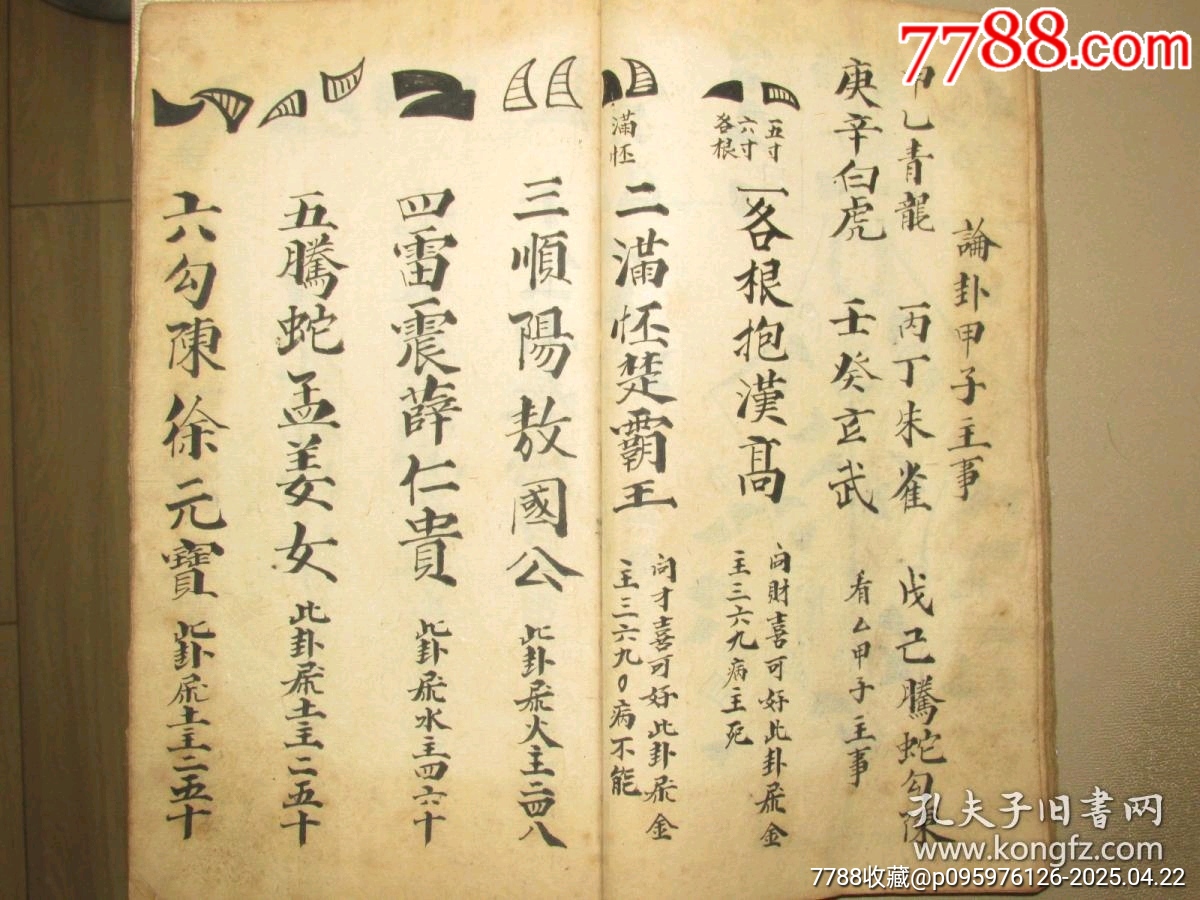 論卦甲子主事
甲乙青龍 丙丁朱雀 戊己騰蛇勾陳
庚辛白虎 壬癸玄武 看厶甲子主事
五寸
六寸
各根
一各根抱漢高
问財喜可好此卦属金
主三六九病主死
滿怌
二滿怌楚霸王
问才喜可好此卦属金
主三六九〇病不能
三順陽敖國公 此卦属火主二四八
四雷震薛仁貴 此卦属水主四六十
五騰蛇孟姜女 此卦属土主二五十
六勾陳徐元寶 此卦属土主二五十
7788.com
孔夫子旧书网
www.kongfz.com
7788收藏@p095976126-2025.04.22